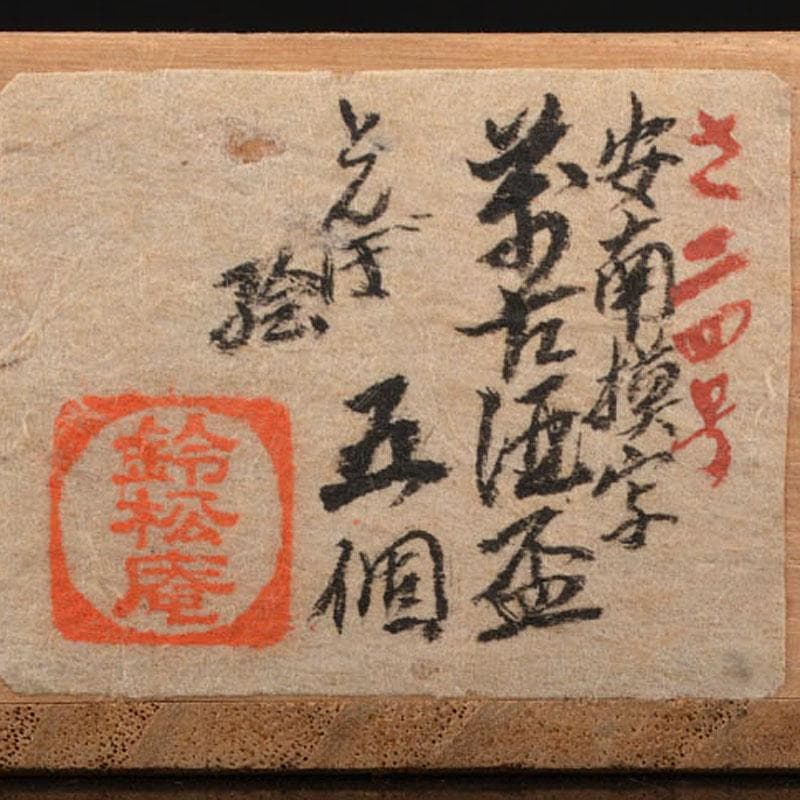 さ二四号
安南摸字
萬古酒盃
とんぼ
絵
五個
鈴松庵